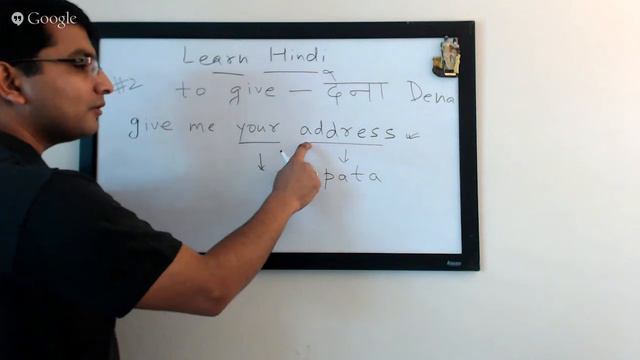 Google
Learn Hindi
#2 to give – देना Dena
give me your address
pata